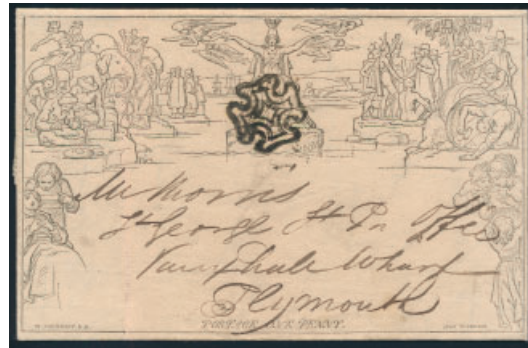 Mr Morris
St George St Pn Office
Vauxhale Wharf
Plymouth
POSTAGE ONE PENNY.